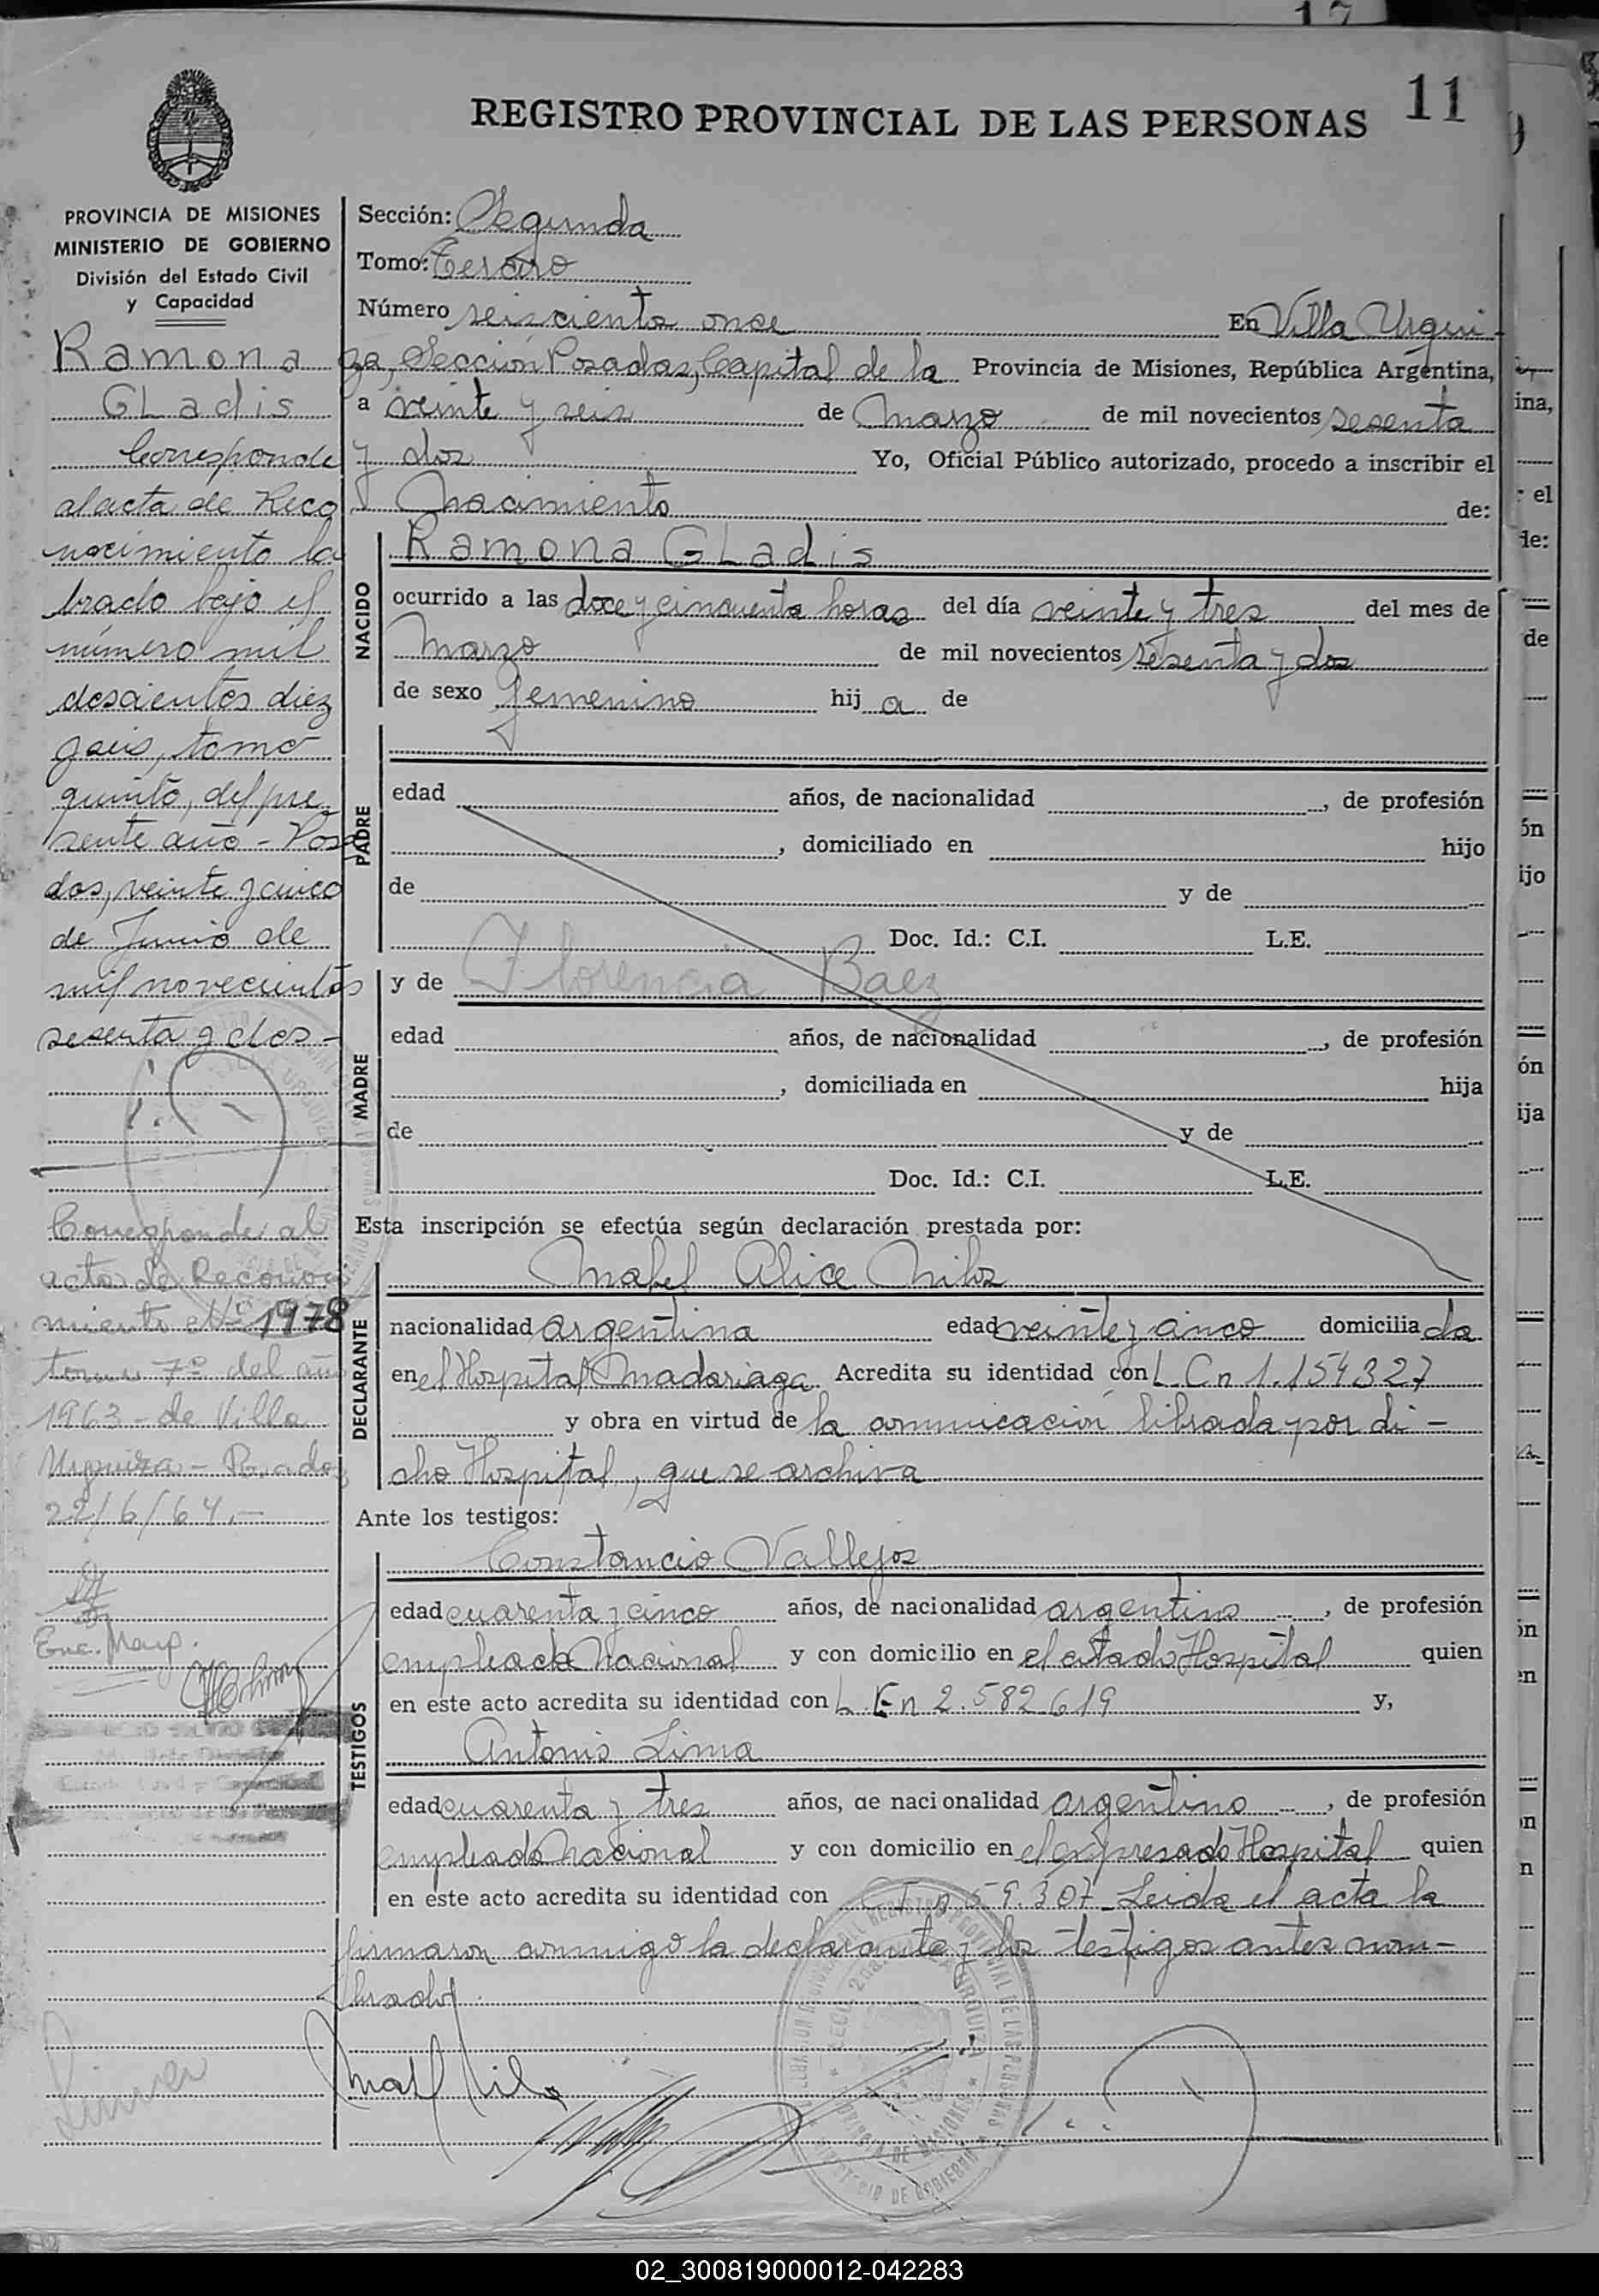 REGISTRO PROVINCIAL DE LAS PERSONAS
11
PROVINCIA DE MISIONES
MINISTERIO DE GOBIERNO
División del Estado Civil
y Capacidad
Ramona
GLadis
Corresponde
al acta de Reco
nocimiento la
brado bajo el
número mil
descientos diez
y seis, tomo
quinto, del pre
sente año - Posa
das, veinte y cinco
de Junio de
mil novecientos
sesenta y dos -
Corresponde al
acta de Reconoci
miento Nº 1978
tomo 7º del año
1963 - de Villa
Urquiza - Posadas
22/6/64.-
Sección: Segunda
Tomo: Tercero
Número seisciento once En Villa Urqui-
za, Sección Posadas, Capital de la Provincia de Misiones, República Argentina,
a veinte y seis de Marzo de mil novecientos sesenta
y dos Yo, Oficial Público autorizado, procedo a inscribir el
Nacimiento de:
NACIDO
Ramona GLadis
ocurrido a las doce y cincuenta horas del día veinte y tres del mes de
Marzo de mil novecientos sesenta y dos
de sexo femenino hij a de
PADRE
edad años, de nacionalidad , de profesión
, domiciliado en hijo
de y de
Doc. Id.: C.I. L.E.
y de Florencia Baez
MADRE
edad años, de nacionalidad , de profesión
, domiciliada en hija
de y de
Doc. Id.: C.I. L.E.
Esta inscripción se efectúa según declaración prestada por:
DECLARANTE
Mabel Alice Milos
nacionalidad argentina edad veinte y cinco domicilia da
en el Hospital Madariaga Acredita su identidad con L.C n 1.154327
y obra en virtud de la comunicación librada por di-
cho Hospital, que se archiva
Ante los testigos:
TESTIGOS
Constancio Vallejos
edad cuarenta y cinco años, de nacionalidad argentino , de profesión
empleado Nacional y con domicilio en el citado Hospital quien
en este acto acredita su identidad con L. E n 2.582.619 y,
Antonio Lima
edad cuarenta y tres años, de nacionalidad argentino , de profesión
empleado Nacional y con domicilio en el expresado Hospital quien
en este acto acredita su identidad con C I n 59.307 Leida el acta la
firmaron conmigo la declarante y los testigos antes nom-
brados
02_300819000012-042283